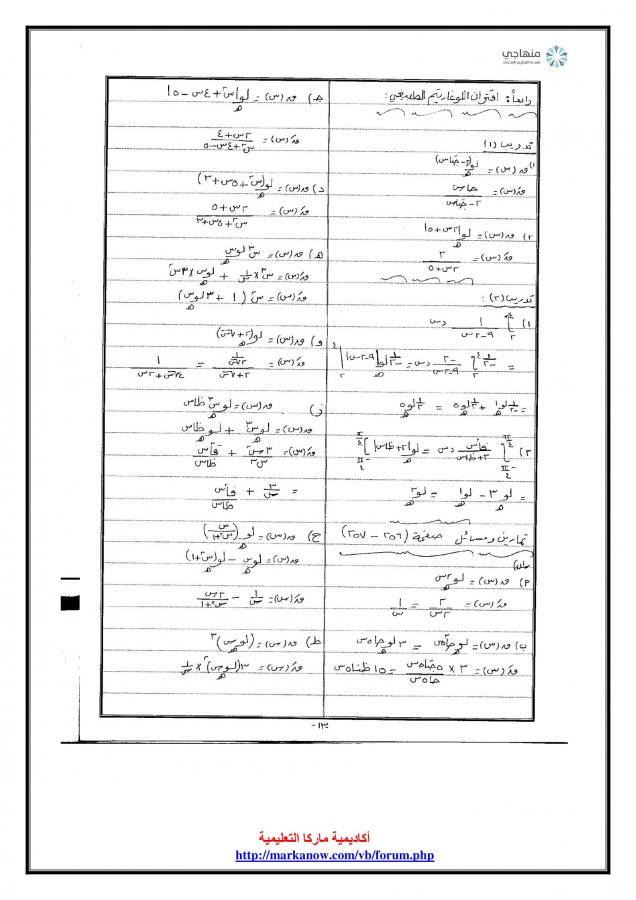 منهاجي
رابعاً: اقتران اللوغاريتم الطبيعي:
تدريب (١)
١) ق(س) = لو_هـ (٢ - جتاس)
قَ(س) = جاس / (٢ - جتاس)
٢) ق(س) = لو_هـ |٢س + ٥|
قَ(س) = ٢ / (٢س + ٥)
تدريب (٢):
١) ∫ ١ / (٩ - ٢س) دس
= -١/٢ ∫ -٢ / (٩ - ٢س) دس = -١/٢ لو_هـ |٩ - ٢س|
= -١/٢ لو_هـ ١ + ١/٢ لو_هـ ٥ = ١/٢ لو_هـ ٥
٢) ∫ قا٢س / (٢ + ظاس) دس = لو_هـ |٢ + ظاس|
= لو_هـ ٣ - لو_هـ ١ = لو_هـ ٣
تمارين ومسائل صفحة (٢٥٦ - ٢٥٧)
س١)
٢) ق(س) = لو_هـ ٢س
قَ(س) = ٢ / ٢س = ١ / س
ب) ق(س) = لو_هـ جا٣ ٥س = ٣ لو_هـ جا٥س
قَ(س) = ٣ × ٥جتا٥س / جا٥س = ١٥ ظتا٥س
جـ) ق(س) = لو_هـ |س٢ + ٤س - ٥|
قَ(س) = (٢س + ٤) / (س٢ + ٤س - ٥)
د) ق(س) = لو_هـ (س٢ + ٥س + ٣)
قَ(س) = (٢س + ٥) / (س٢ + ٥س + ٣)
هـ) ق(س) = س٣ لو_هـ س
قَ(س) = س٣ × ١/س + لو_هـ س × ٣س٢
قَ(س) = س٢ (١ + ٣ لو_هـ س)
و) ق(س) = لو_هـ (٢ + √س)
ز) ق(س) = لو_هـ س٣ ظاس
ق(س) = لو_هـ س٣ + لو_هـ ظاس
قَ(س) = ٣س٢ / س٣ + قا٢س / ظاس
= ٣/س + قا٢س / ظاس
ح) ق(س) = لو_هـ (س / (س٢ + ١))
ق(س) = لو_هـ س - لو_هـ (س٢ + ١)
قَ(س) = ١/س - ٢س / (س٢ + ١)
ط) ق(س) = (لو_هـ س)٣
قَ(س) = ٣(لو_هـ س)٢ × ١/س
-١٣-
أكاديمية ماركا التعليمية
http://markanow.com/vb/forum.php